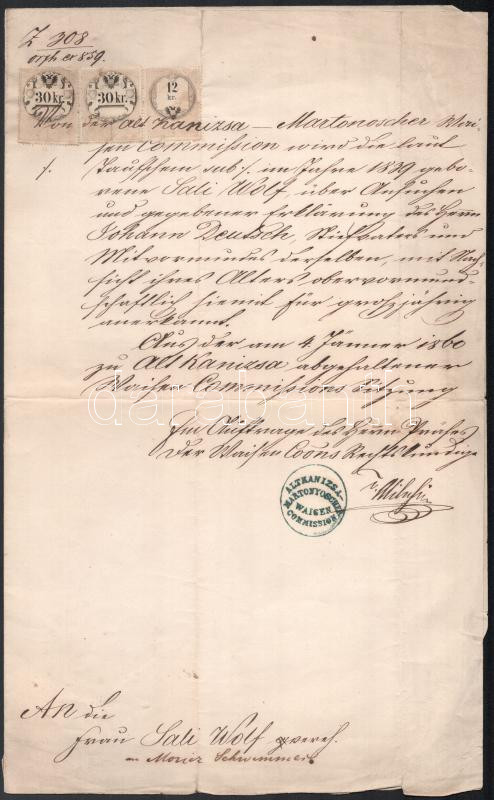 Z 308
orph er 859.
30 kr. 30 kr. 12 kr.
Von der Alt Kanizsa – Martonoscher Wai-
sen Commission wird die laut
Taufschein sub ./. im Jahre 1839 gebo-
./.
rene Sali Wolf über Ansuchen
und gegebener Erklärung des Herrn
Johann Deutsch, Stiefvaters und
Mitvormundes derselben, mit Nach-
sicht ihres Alters obervormund-
schaftlich hiemit für großjährig
anerkannt.
Aus der am 4. Jänner 1860
zu Alt Kanizsa abgehaltener
Waisen Commissions Sitzung
Im Auftrage des Herrn Präses
Der Waisen Coons Rechtskundige
ALTKANIZSA-
MARTONYOSCHER
WAISEN
COMMISSION
An die
Frau Sali Wolf vereh.
Schwimmer
darabanth